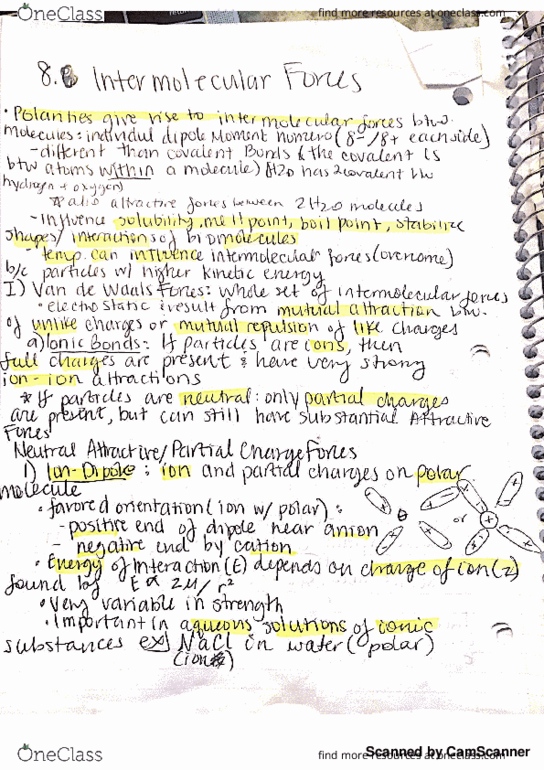 OneClass
find more resources at oneclass.com
8. Intermolecular Forces
• Polarities give rise to intermolecular forces btw.
molecules: individul dipole Moment numero (δ-/δ+ each side)
- different than covalent Bonds & the covalent is
btw atoms within a molecule) H2O has 2 covalent btw
hydrogn + oxygen)
* also attractive forces between 2 H2O molecules
- Influence solubility, melt point, boil point, stabilize
shapes/ interactions of biomolecules
- temp. can influence intermolecular forces (overcome)
b/c particles w/ higher kinetic energy
I) Van de Waals Forces: whole set of intermolecular forces
• electrostatic: result from mutual attraction btw.
of unlike charges or mutual repulsion of like charges
a) Ionic Bonds: If particles are ions, then
full charges are present & have very strong
ion-ion attractions
* If particles are neutral: only partial charges
are present, but can still have substantial Attractive
Forces
Neutral Attractive/Partial Charge Forces
1) Ion-Dipole: ion and partial charges on polar
molecule
• favored orientation (ion w/ polar):
- positive end of dipole near anion
- negative end by cation
or
• Energy of Interaction (E) depends on charge of ion (z)
found by E ∝ zµ/r²
• Very variable in strength
• Important in aqueous solutions of ionic
substances ex) NaCl in water (polar)
(ion)
OneClass
find more resources at oneclass.com
Scanned by CamScanner